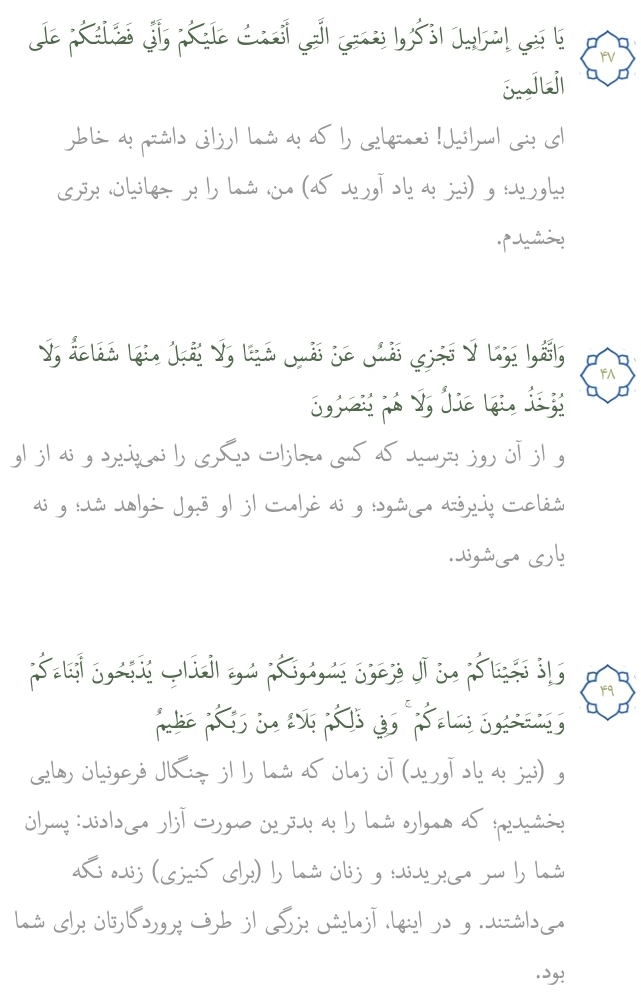 ۴۷
يَا بَنِي إِسْرَايِيلَ اذْكُرُوا نِعْمَتِيَ الَّتِي أَنْعَمْتُ عَلَيْكُمْ وَأَنِّي فَضَّلْتُكُمْ عَلَى
الْعَالَمِينَ
ای بنی اسرائیل! نعمتهایی را که به شما ارزانی داشتم به خاطر
بیاورید؛ و (نیز به یاد آورید که) من، شما را بر جهانیان، برتری
بخشیدم.
۴۸
وَاتَّقُوا يَوْمًا لَا تَجْزِي نَفْسٌ عَنْ نَفْسٍ شَيْئًا وَلَا يُقْبَلُ مِنْهَا شَفَاعَةٌ وَلَا
يُؤْخَذُ مِنْهَا عَدْلٌ وَلَا هُمْ يُنْصَرُونَ
و از آن روز بترسید که کسی مجازات دیگری را نمی‌پذیرد و نه از او
شفاعت پذیرفته می‌شود؛ و نه غرامت از او قبول خواهد شد؛ و نه
یاری می‌شوند.
۴۹
وَإِذْ نَجَّيْنَاكُمْ مِنْ آلِ فِرْعَوْنَ يَسُومُونَكُمْ سُوءَ الْعَذَابِ يُذَبِّحُونَ أَبْنَاءَكُمْ
وَيَسْتَحْيُونَ نِسَاءَكُمْ ۚ وَفِي ذَٰلِكُمْ بَلَاءٌ مِنْ رَبِّكُمْ عَظِيمٌ
و (نیز به یاد آورید) آن زمان که شما را از چنگال فرعونیان رهایی
بخشیدیم؛ که همواره شما را به بدترین صورت آزار می‌دادند: پسران
شما را سر می‌بریدند؛ و زنان شما را (برای کنیزی) زنده نگه
می‌داشتند. و در اینها، آزمایش بزرگی از طرف پروردگارتان برای شما
بود.